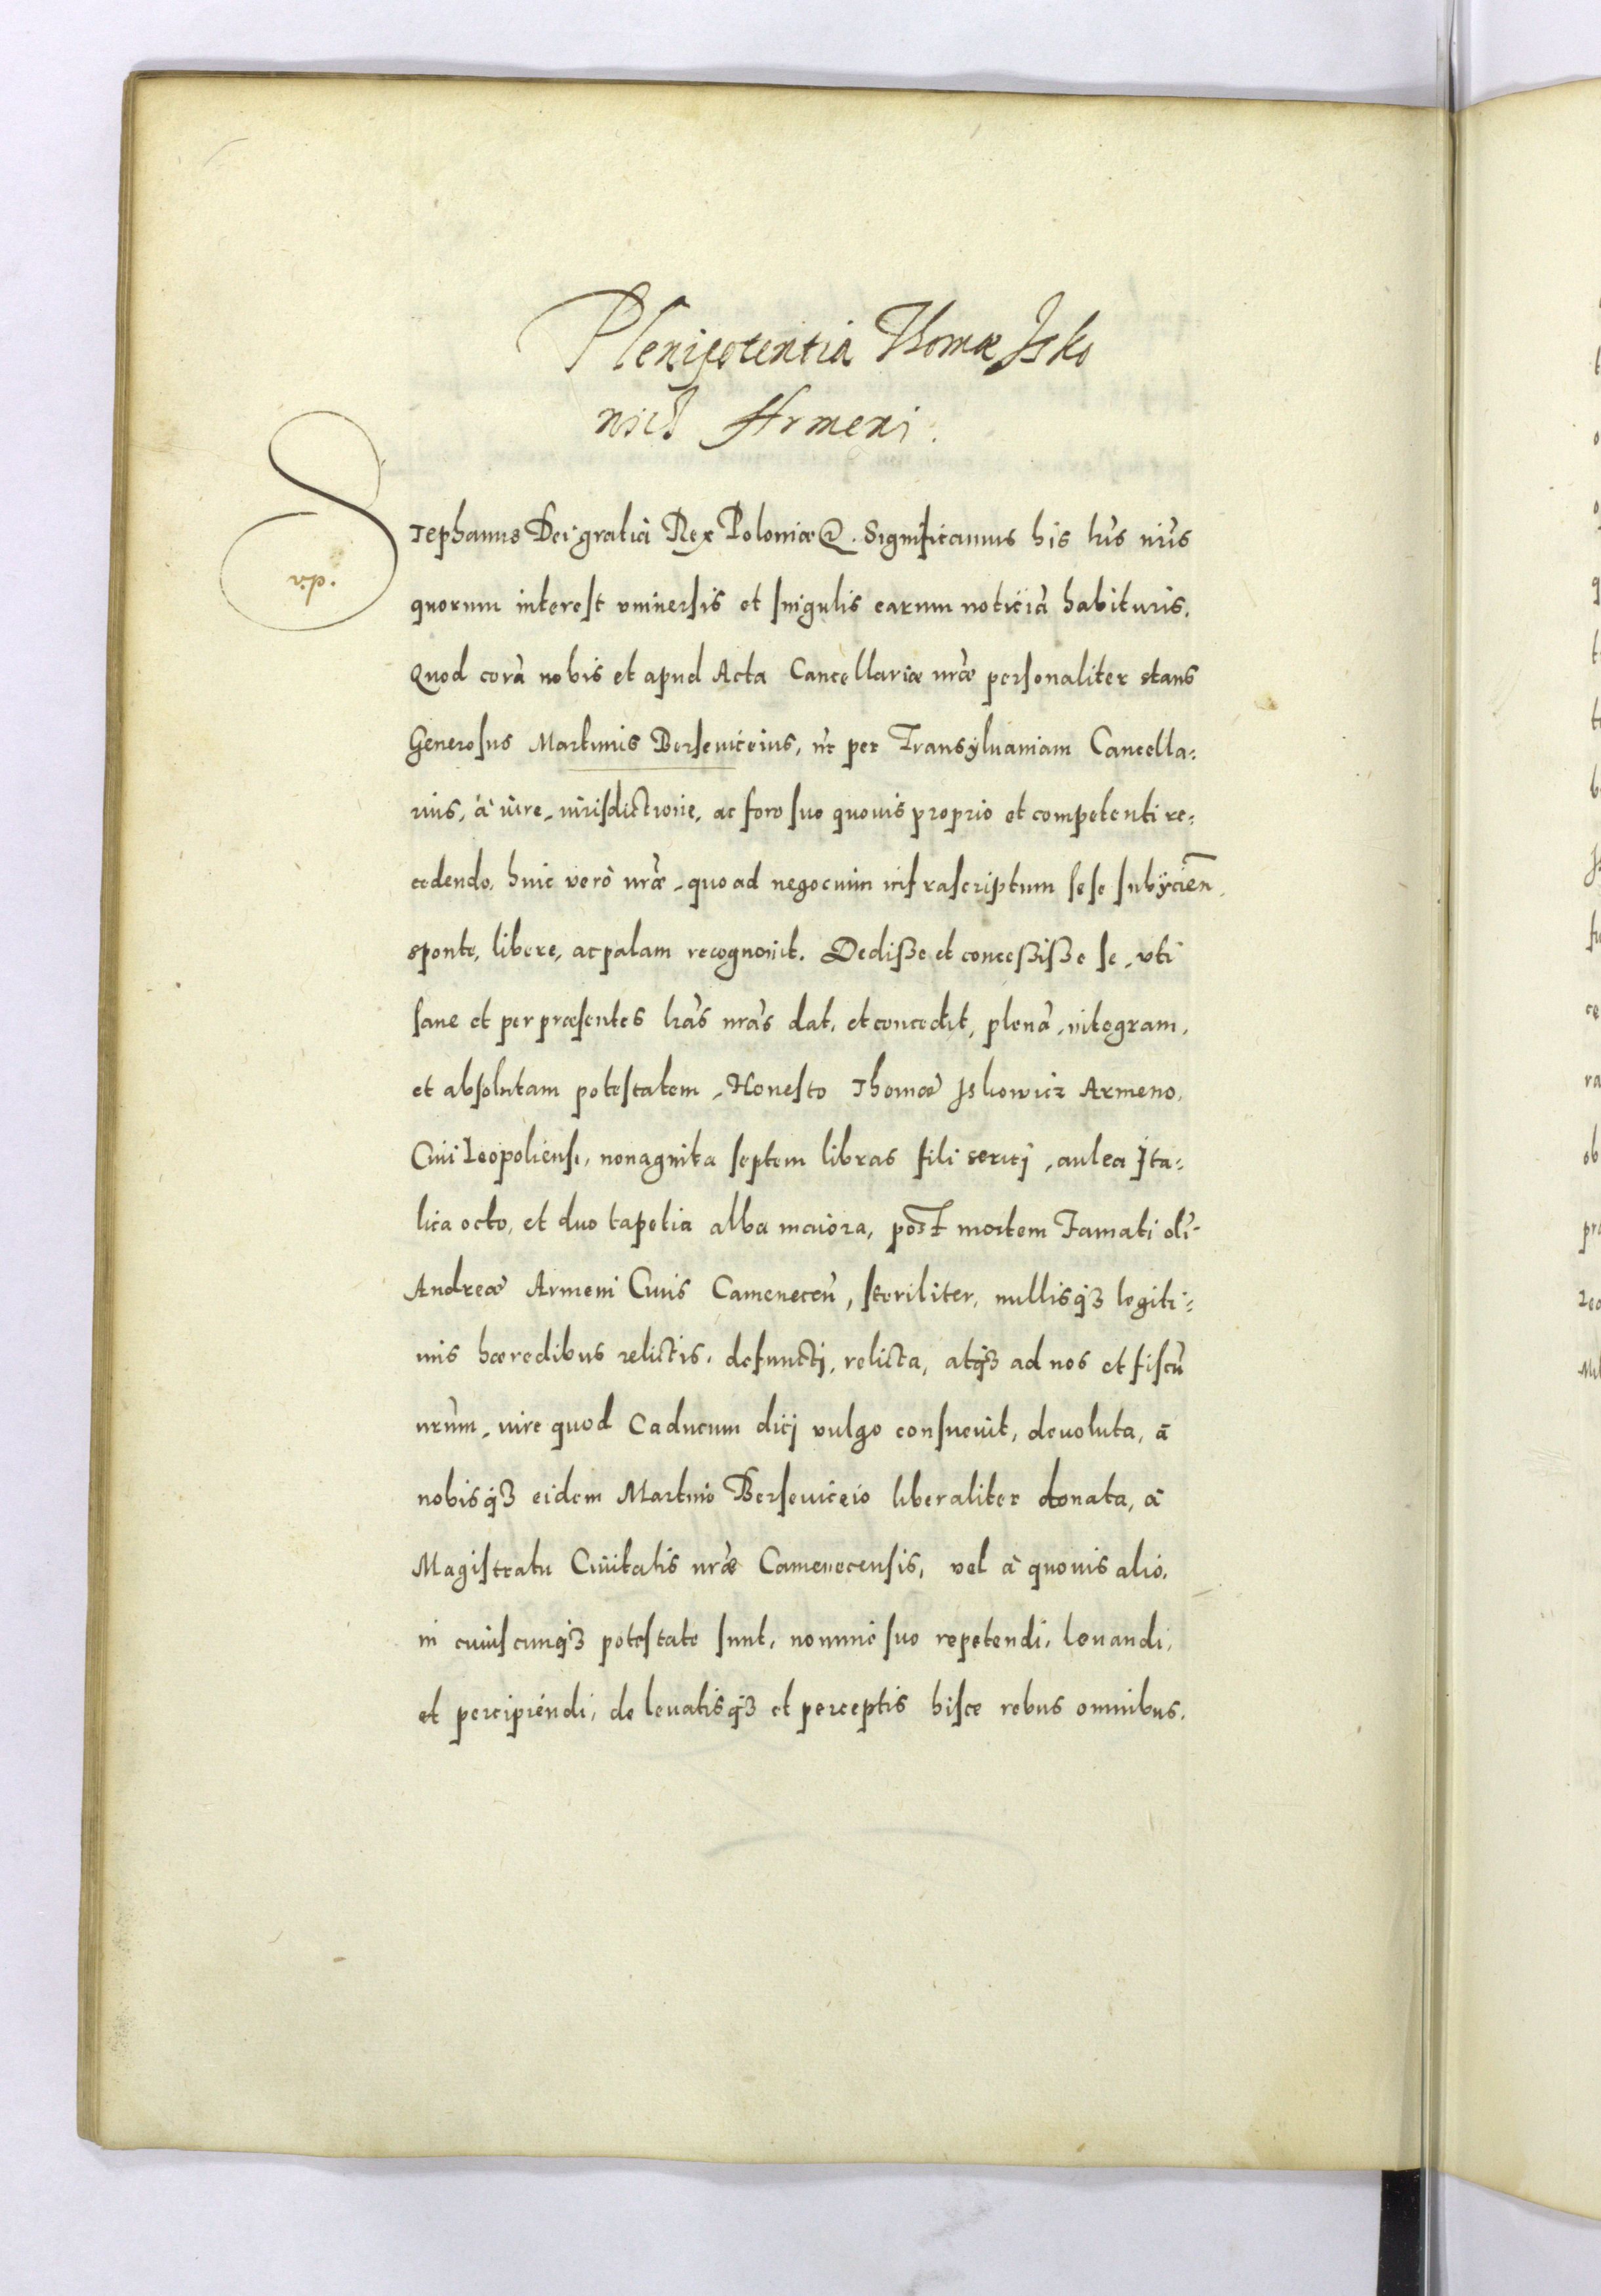 Plenipotentia Thomae Isko
wicz Armeni.
Stephanus Dei gratia Rex Poloniae etc. Significamus his lr̃is nr̃is
quorum interest vniuersis et singulis earum noticiã habituris.
Quod corã nobis et apud Acta Cancellariae nr̃ae personaliter stans
Generosus Martinus Berseuiceius, nr̃ per Transyluaniam Cancella=
rius, à iure, iurisdictione, ac foro suo quouis proprio et competenti re=
cedendo, huic verò nr̃ae, quo ad negocium infrascriptum sese subijcien̄.
sponte, libere, ac palam recognouit. Dediße et conceßiße se, vti
sane et per praesentes lr̃as nr̃as dat, et concedit, plenã, integram,
et absolutam potestatem, Honesto Thomae Iskowicz Armeno,
Ciui Leopoliensi, nonaginta septem libras fili serici, aulea Ita=
lica octo, et duo tapetia alba maiora, post mortem Famati oli͂
Andreae Armeni Ciuis Camenecen͂, steriliter, nullisq3 legiti=
mis haeredibus relictis, defuncti, relicta, atq3 ad nos et fiscũ
nr̃um, iure quod Caducum dici vulgo consueuit, deuoluta, à
nobisq3 eidem Martino Berseuiceio liberaliter donata, à
Magistratu Ciuitatis nr̃ae Camenecensis, vel à quouis alio,
in cuiuscunq3 potestate sunt, nomine suo repetendi, leuandi,
et percipiendi, de leuatisq3 et perceptis hisce rebus omnibus.